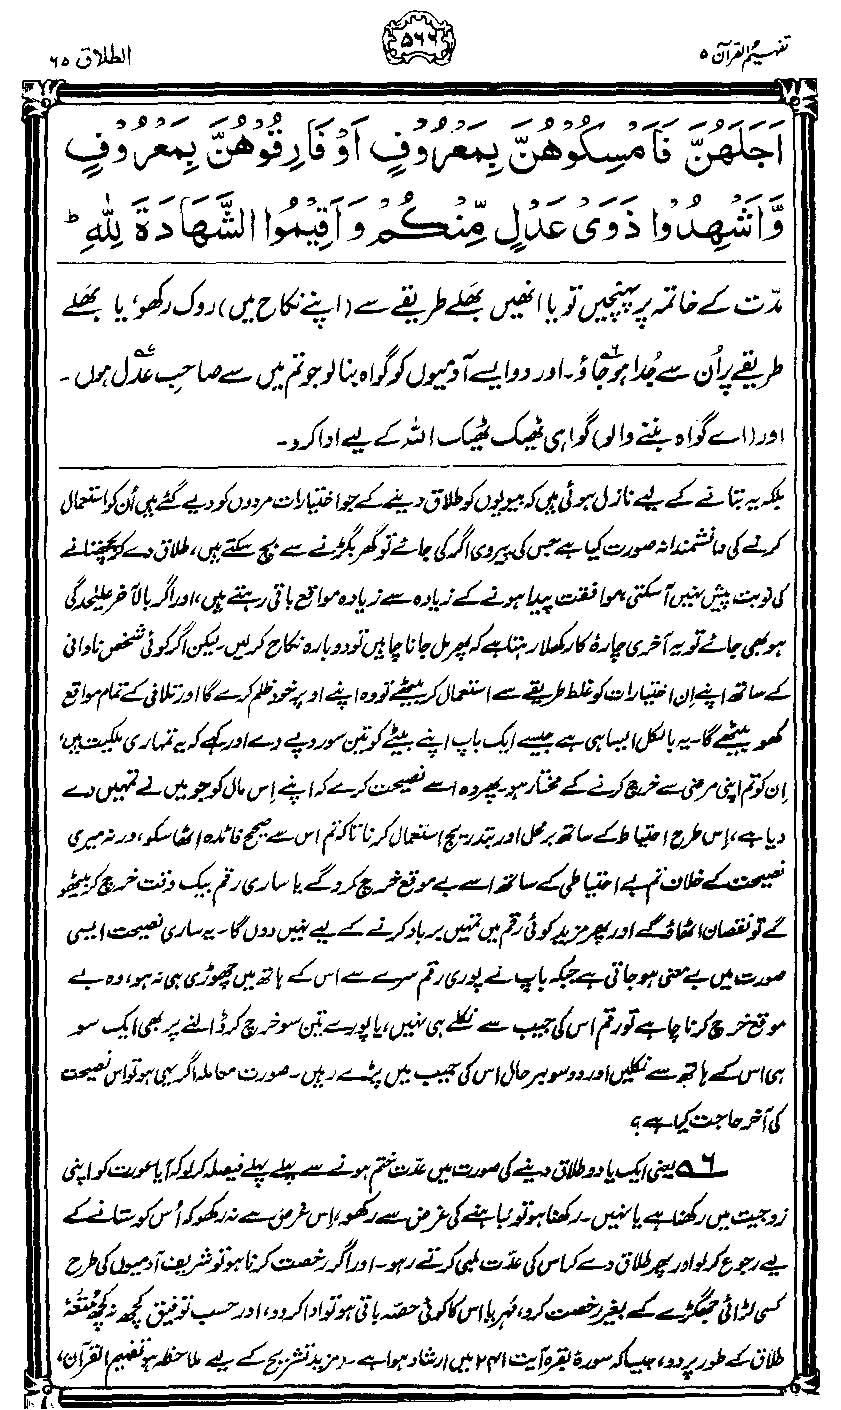 تفہیم القرآن ۵
۵۶۶
الطلاق ۶۵
اَجَلَهُنَّ فَاَمْسِكُوْهُنَّ بِمَعْرُوْفٍ اَوْ فَارِقُوْهُنَّ بِمَعْرُوْفٍ
وَّاَشْهِدُوْا ذَوَىْ عَدْلٍ مِّنْكُمْ وَاَقِيْمُوا الشَّهَادَةَ لِلّٰهِ ؕ
مدّت کے خاتمہ پر پہنچیں تو یا انھیں بھلے طریقے سے (اپنے نکاح میں) روک رکھو، یا بھلے
طریقے پر اُن سے جُدا ہو جاؤ۔۶ اور دو ایسے آدمیوں کو گواہ بنا لو جو تم میں سے صاحبِ عدل۷ ہوں۔
اور (اے گواہ بننے والو) گواہی ٹھیک ٹھیک اللہ کے لیے ادا کرو۔
بلکہ یہ بتانے کے لیے نازل ہوئی ہیں کہ بیویوں کو طلاق دینے کے جو اختیارات مردوں کو دیے گئے ہیں اُن کو استعمال
کرنے کی دانشمندانہ صورت کیا ہے جس کی پیروی اگر کی جائے تو گھر بگڑنے سے بچ سکتے ہیں، طلاق دے کر پچھتانے
کی نوبت پیش نہیں آ سکتی، موافقت پیدا ہونے کے زیادہ سے زیادہ مواقع باقی رہتے ہیں، اور اگر بالآخر علیٰحدگی
ہو بھی جائے تو یہ آخری چارۂ کار کھلا رہتا ہے کہ پھر مل جانا چاہیں تو دوبارہ نکاح کر لیں۔ لیکن اگر کوئی شخص نادانی
کے ساتھ اپنے اِن اختیارات کو غلط طریقے سے استعمال کر بیٹھے تو وہ اپنے اوپر خود ظلم کرے گا اور تلافی کے تمام مواقع
کھو بیٹھے گا۔ یہ بالکل ایسا ہی ہے جیسے ایک باپ اپنے بیٹے کو تین سو روپے دے اور کہے کہ یہ تمہاری ملکیت ہیں،
اِن کو تم اپنی مرضی سے خرچ کرنے کے مختار ہو۔ پھر وہ اسے نصیحت کرے کہ اپنے اِس مال کو جو میں نے تمہیں دے
دیا ہے، اِس طرح احتیاط کے ساتھ برمحل اور بتدریج استعمال کرنا تاکہ تم اس سے صحیح فائدہ اٹھا سکو، ورنہ میری
نصیحت کے خلاف تم بے احتیاطی کے ساتھ اسے بے موقع خرچ کرو گے یا ساری رقم بیک وقت خرچ کر بیٹھو
گے تو نقصان اٹھاؤ گے اور پھر مزید کوئی رقم میں تمہیں برباد کرنے کے لیے نہیں دوں گا۔ یہ ساری نصیحت ایسی
صورت میں بے معنی ہو جاتی ہے جبکہ باپ نے پوری رقم سرے سے اس کے ہاتھ میں چھوڑی ہی نہ ہو، وہ بے
موقع خرچ کرنا چاہے تو رقم اس کی جیب سے نکلے ہی نہیں، یا پورے تین سو خرچ کر ڈالنے پر بھی ایک سو
ہی اس کے ہاتھ سے نکلیں اور دو سو بہرحال اس کی جیب میں پڑے رہیں۔ صورت معاملہ اگر یہی ہو تو اس نصیحت
کی آخر حاجت کیا ہے؟
۶ یعنی ایک یا دو طلاق دینے کی صورت میں عدّت ختم ہونے سے پہلے پہلے فیصلہ کر لو کہ آیا عورت کو اپنی
زوجیت میں رکھنا ہے یا نہیں۔ رکھنا ہو تو نباہنے کی غرض سے رکھو، اِس غرض سے نہ رکھو کہ اُس کو ستانے کے
لیے رجوع کر لو اور پھر طلاق دے کر اس کی عدّت لمبی کرتے رہو۔ اور اگر رخصت کرنا ہو تو شریف آدمیوں کی طرح
کسی لڑائی جھگڑے کے بغیر رخصت کرو، مَہر یا اس کا کوئی حصہ باقی ہو تو ادا کردو، اور حسبِ توفیق کچھ نہ کچھ مُتعۂ
طلاق کے طور پر دو، جیسا کہ سورۂ بقرہ آیت ۲۴۱ میں ارشاد ہوا ہے۔ (مزید تشریح کے لیے ملاحظہ ہو تفہیم القرآن،